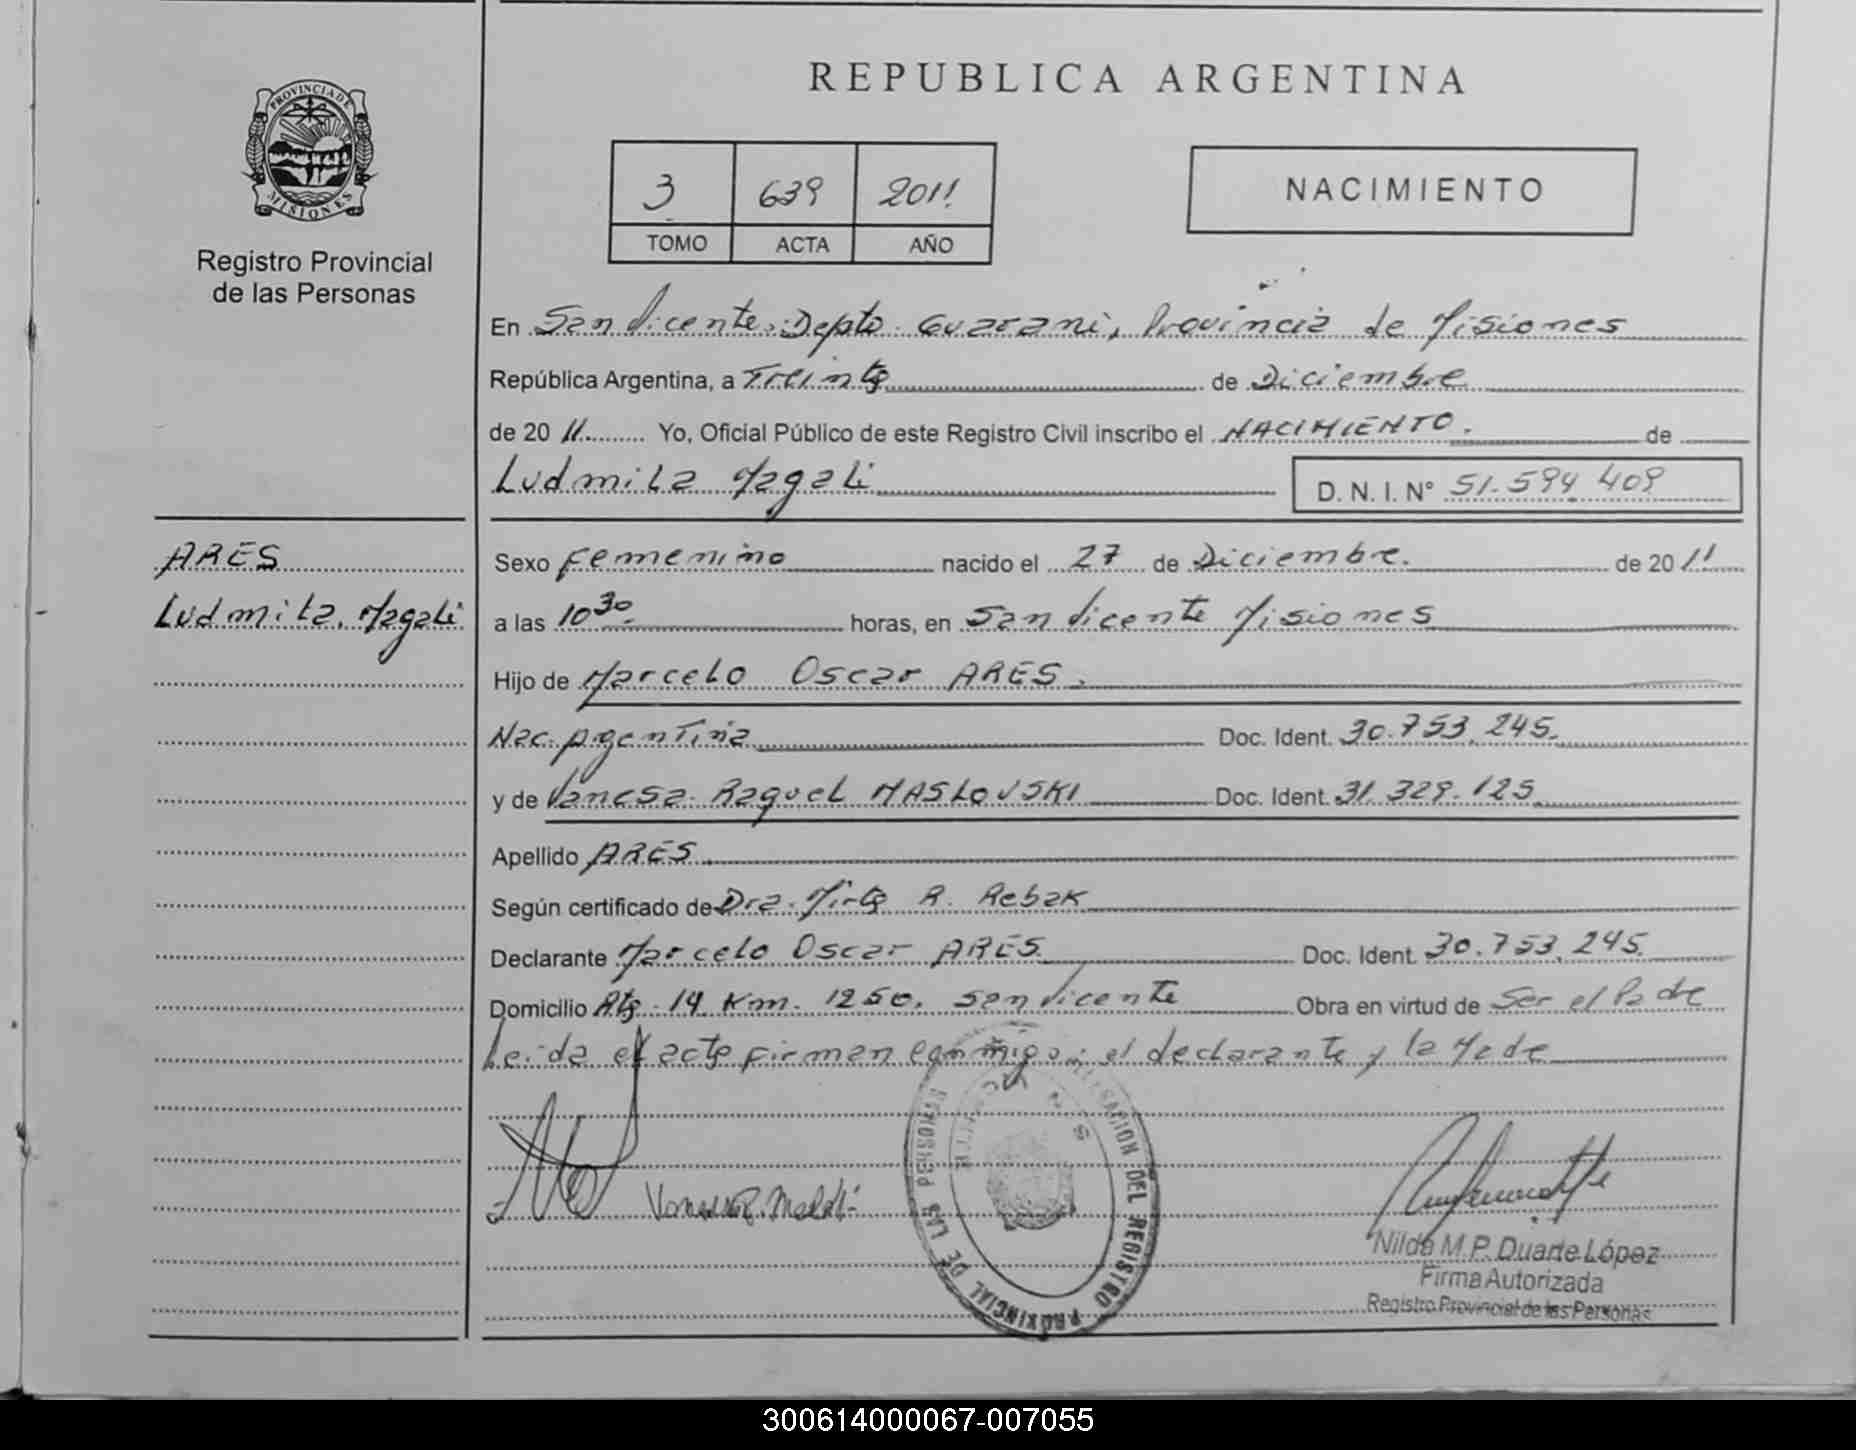 PROVINCIA DE
MISIONES
Registro Provincial
de las Personas
REPUBLICA ARGENTINA
3 639 2011
TOMO ACTA AÑO
NACIMIENTO
En San Vicente, Depto Guarani, Provincia de Misiones
República Argentina, a Treinta de Diciembre
de 20 11 Yo, Oficial Público de este Registro Civil inscribo el NACIMIENTO. de
Ludmila Magali D. N. I. N° 51.594 409
ARES
Ludmila Magali
Sexo Femenino nacido el 27 de Diciembre. de 20 11
a las 10 30 horas, en San Vicente Misiones
Hijo de Marcelo Oscar ARES.
Nac. Argentina Doc. Ident. 30.753.245.
y de Vanesa Raquel MASLOVSKI Doc. Ident. 31.329.125
Apellido ARES.
Según certificado de Dra. Mirta R. Rebak
Declarante Marcelo Oscar ARES Doc. Ident. 30.753.245.
Domicilio Rta. 14 Km. 1250. San Vicente Obra en virtud de Ser el Padre
Leida el acta firman conmigo el declarante y la Madre
DELEGACION DEL REGISTRO PROVINCIAL DE LAS PERSONAS
Nilda M.P. Duarte López
Firma Autorizada
Registro Provincial de las Personas
300614000067-007055